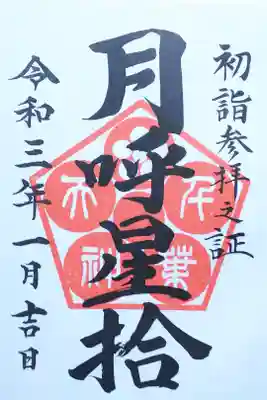 初詣参拝之証
月呼星拾
令和三年一月吉日